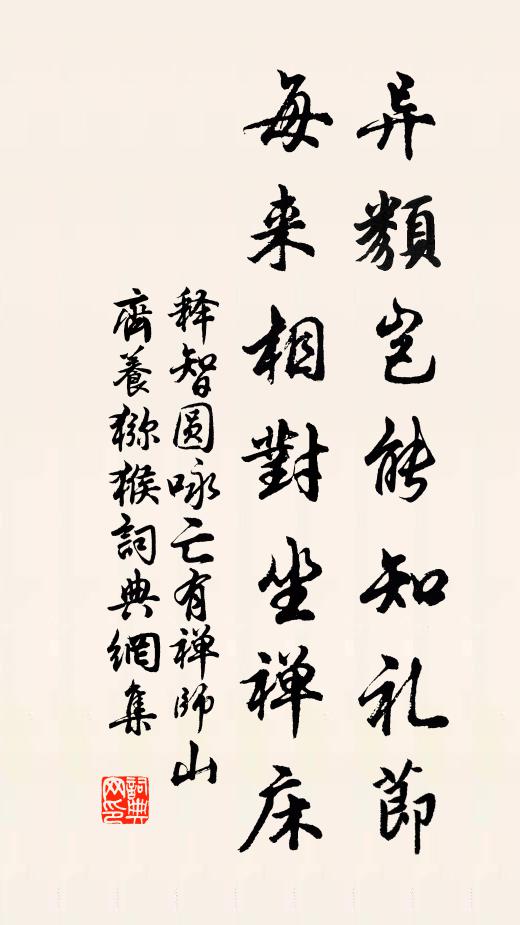 异類岂能知礼節
每来相對坐禅床
释智圆咏亡有禅师山
齋養猕猴詞典網集
詞典网印